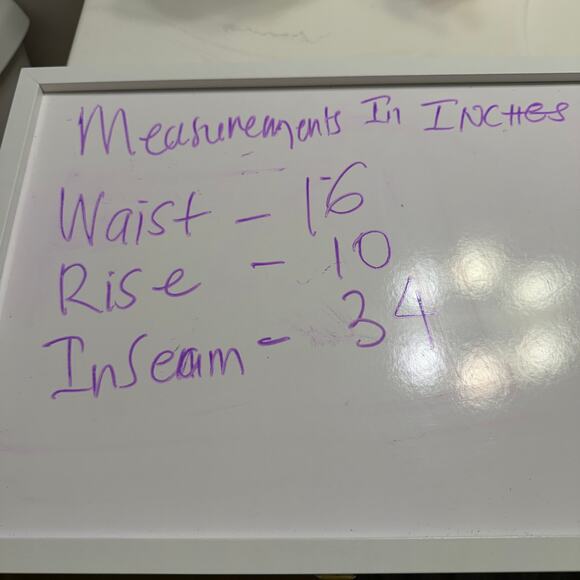 Measurements In INCHES
Waist - 16
Rise - 10
Inseam - 34